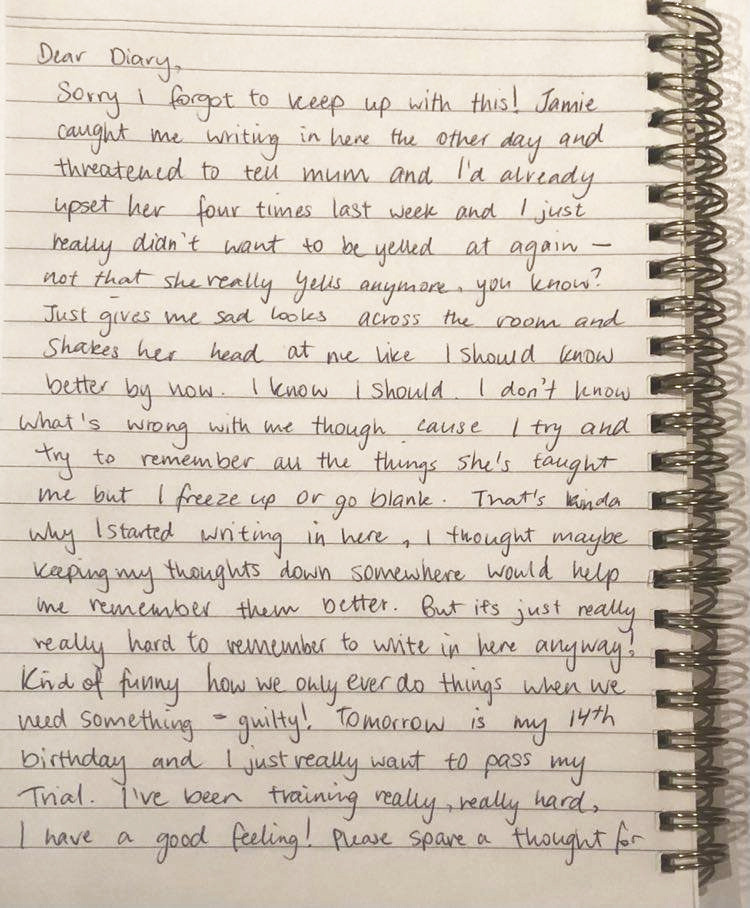 Dear Diary,
Sorry i forgot to keep up with this! Jamie
caught me writing in here the other day and
threatened to tell mum and I'd already
upset her four times last week and I just
really didn't want to be yelled at again —
not that she really yells anymore, you know?
Just gives me sad looks across the room and
shakes her head at me like I should know
better by now. I know I should. I don't know
what's wrong with me though cause I try and
try to remember all the things she's taught
me but I freeze up or go blank. That's kinda
why I started writing in here, I thought maybe
keeping my thoughts down somewhere would help
me remember them better. But it's just really
really hard to remember to write in here anyway!
Kind of funny how we only ever do things when we
need something - guilty! Tomorrow is my 14th
birthday and I just really want to pass my
Trial. I've been training really, really hard,
I have a good feeling! Please spare a thought for